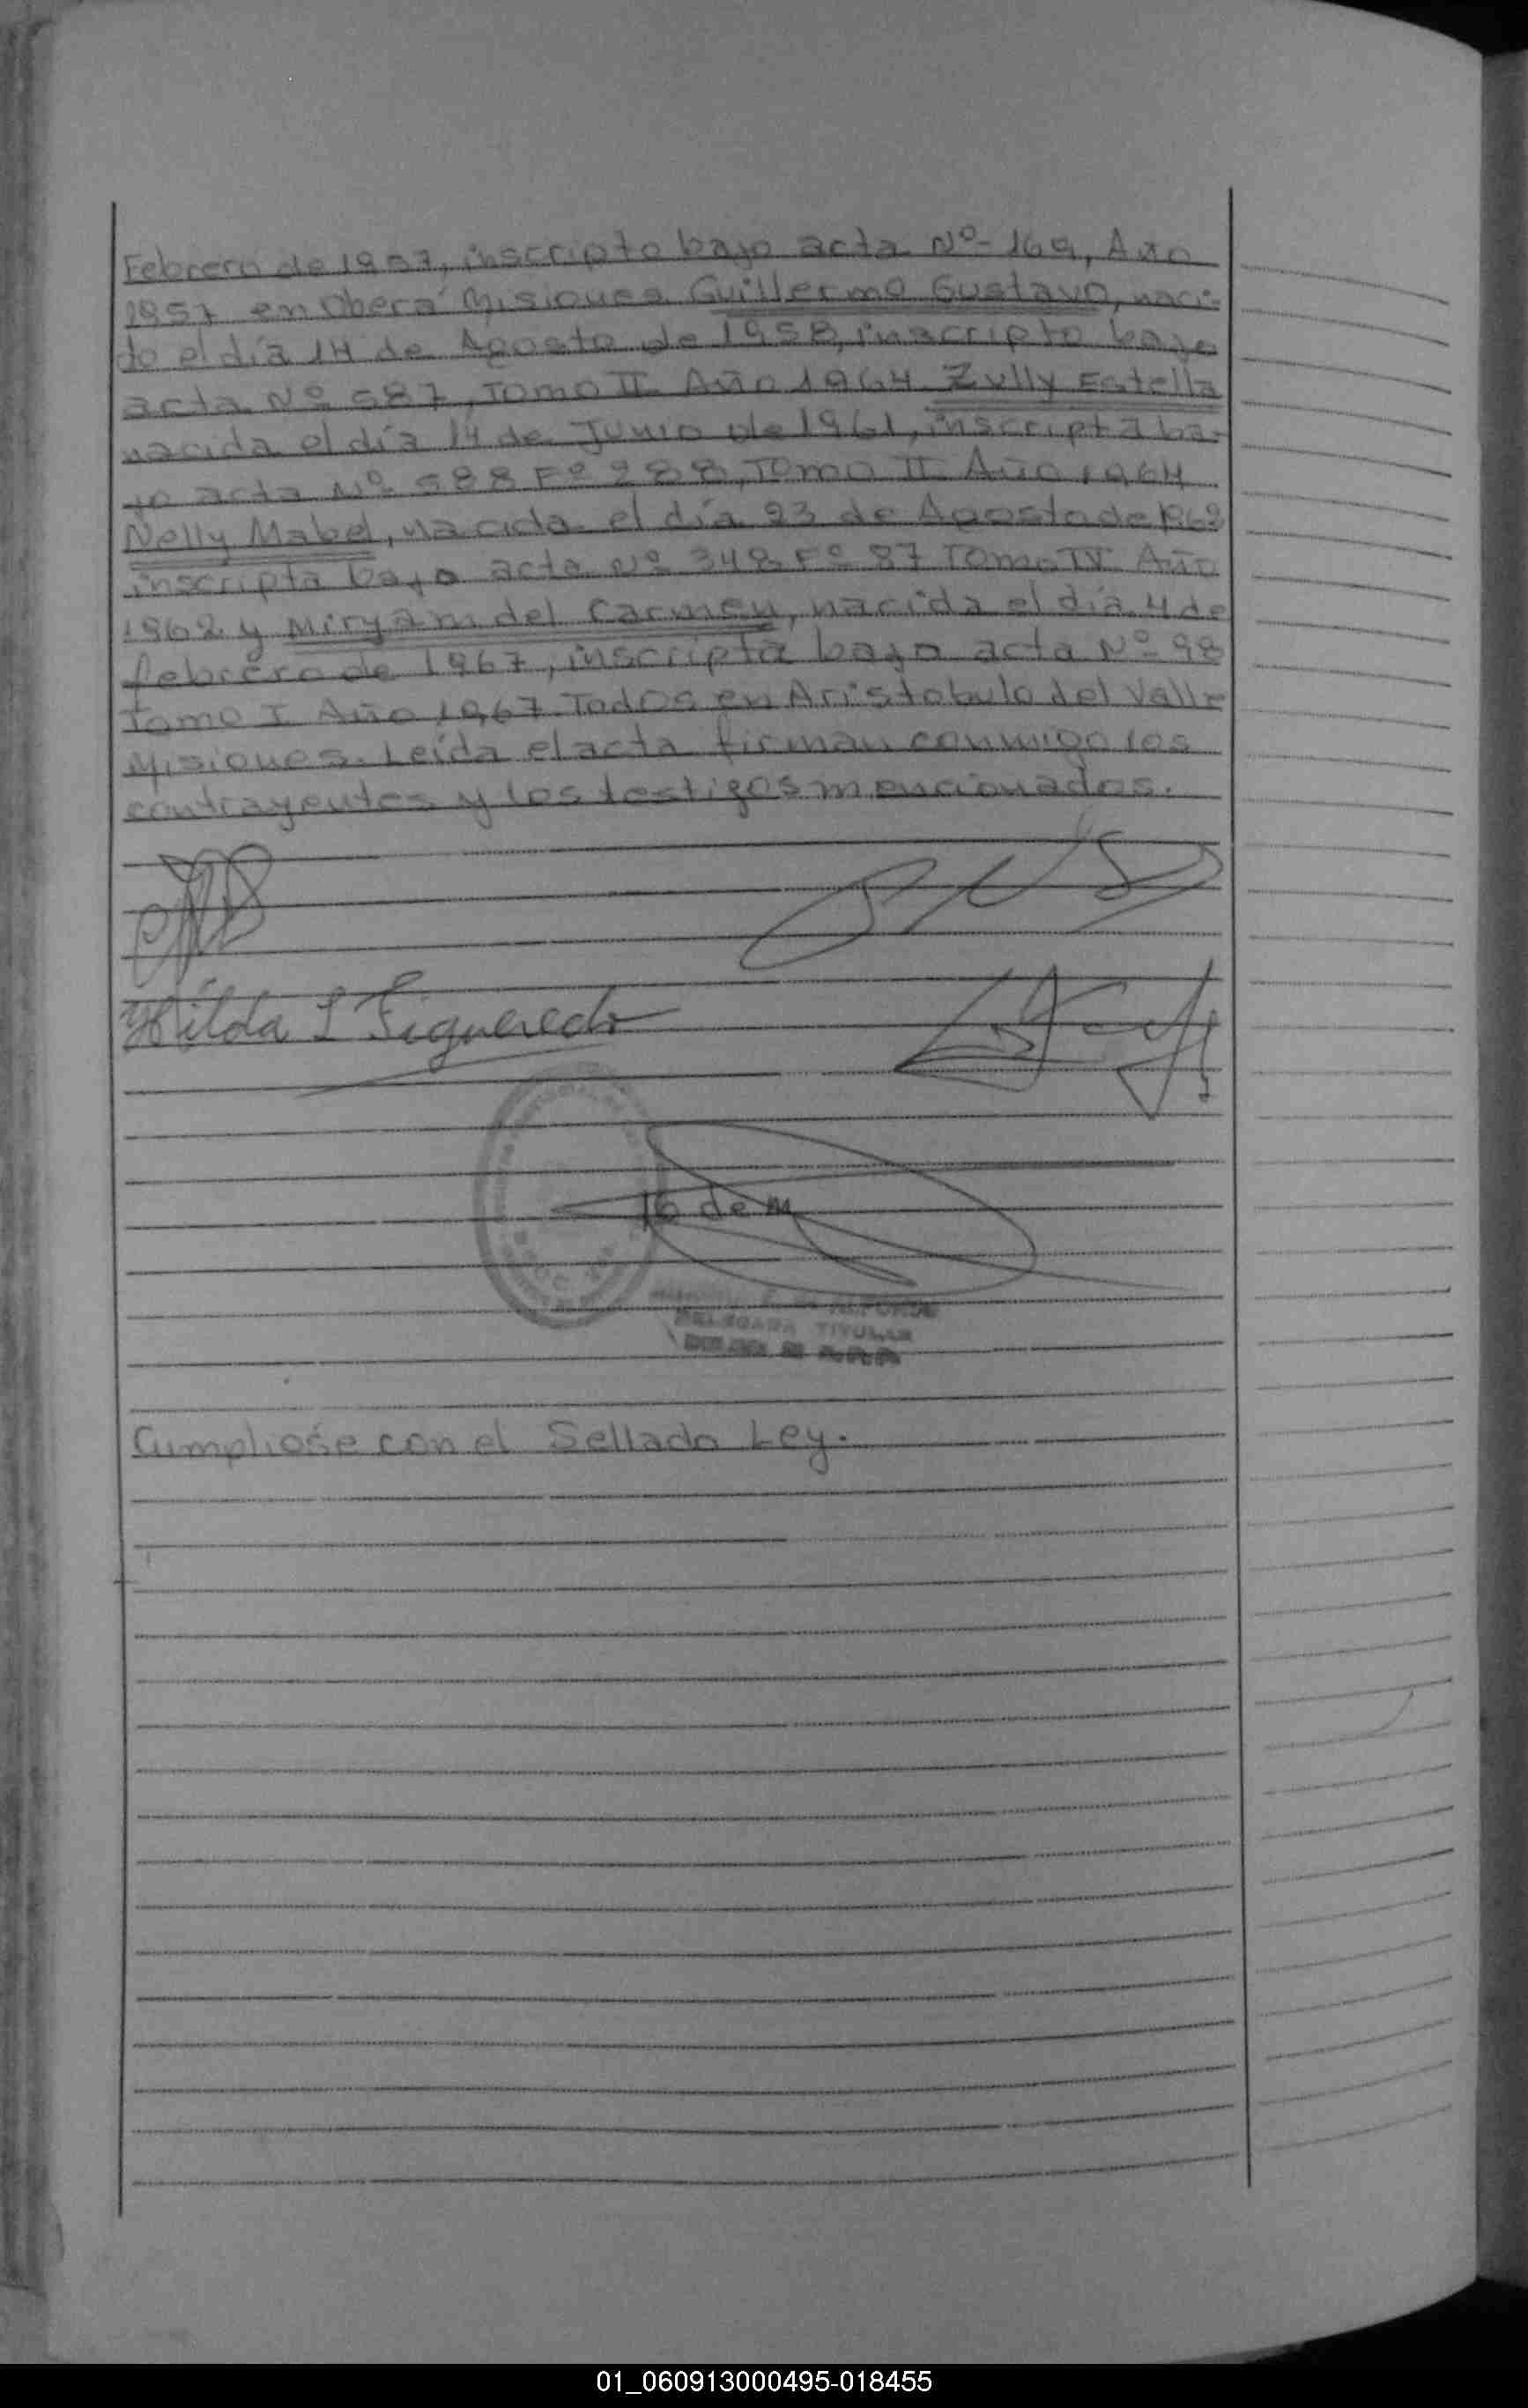 Febrero de 1957, inscripto bajo acta Nº- 169, Año
1957 en Oberá Misiones. Guillermo Gustavo, naci-
do el día 14 de Agosto de 1958, inscripto bajo
acta Nº 587, Tomo II Año 1964. Zully Estella
nacida el día 14 de Junio de 1961, inscripta ba-
jo acta Nº 588 Fº 288, Tomo II Año 1964
Nelly Mabel, nacida el día 23 de Agosto de 1962
inscripta bajo acta Nº 348 Fº 87 Tomo IV Año
1962 y Miryam del Carmen, nacida el día 4 de
febrero de 1967, inscripta bajo acta Nº 98
Tomo I Año 1967. Todos en Aristobulo del Valle
Misiones. Leída el acta firman conmigo los
contrayentes y los testigos mencionados.
Hilda L Figueredo
16 de M
DELEGADA TITULAR
Cumpliose con el Sellado Ley.
01_060913000495-018455